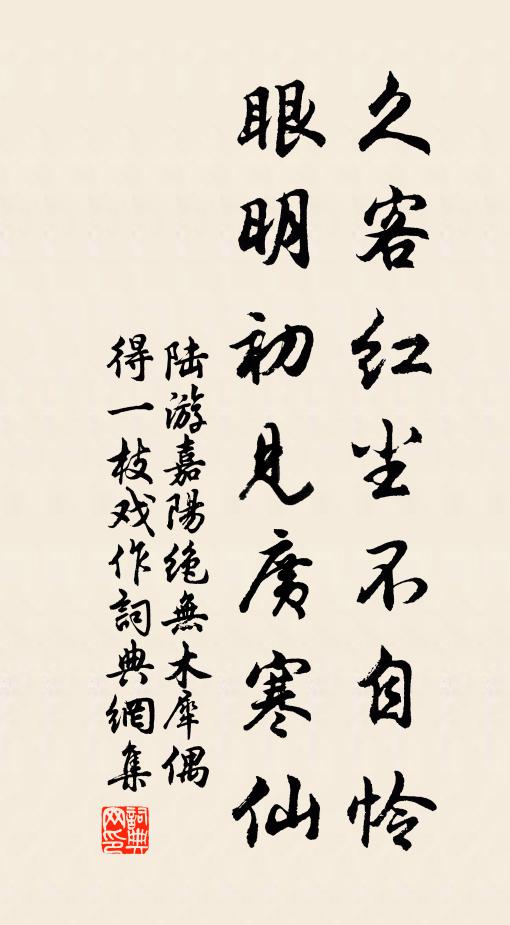 久客红尘不自怜
眼明初见廣寒仙
陆游嘉陽绝無木犀偶
得一枝戏作詞典網集
詞典
网印